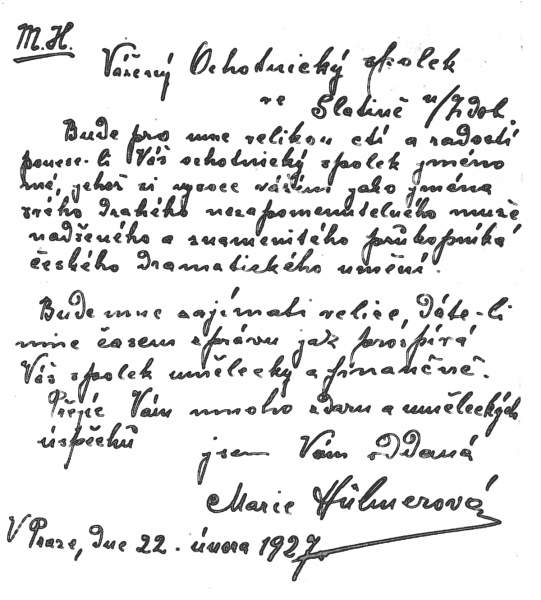 M. H.
Vážený Ochotnický spolek
ve Slatině n/Zdob.
Bude pro mne velikou ctí a radostí
ponese-li Váš ochotnický spolek jméno
mé, jehož si vysoce vážím jako jména
svého drahého nezapomenutelného muže
nadšeného a znamenitého průkopníka
českého dramatického umění.
Bude mne zajímati velice, dáte-li
mne časem zprávu jak prospívá
Váš spolek umělecky a finančně.
Přejíc Vám mnoho zdaru a uměleckých
úspěchů
jsem Vám oddaná
Marie Hübnerová
V Praze, dne 22. února 1927.